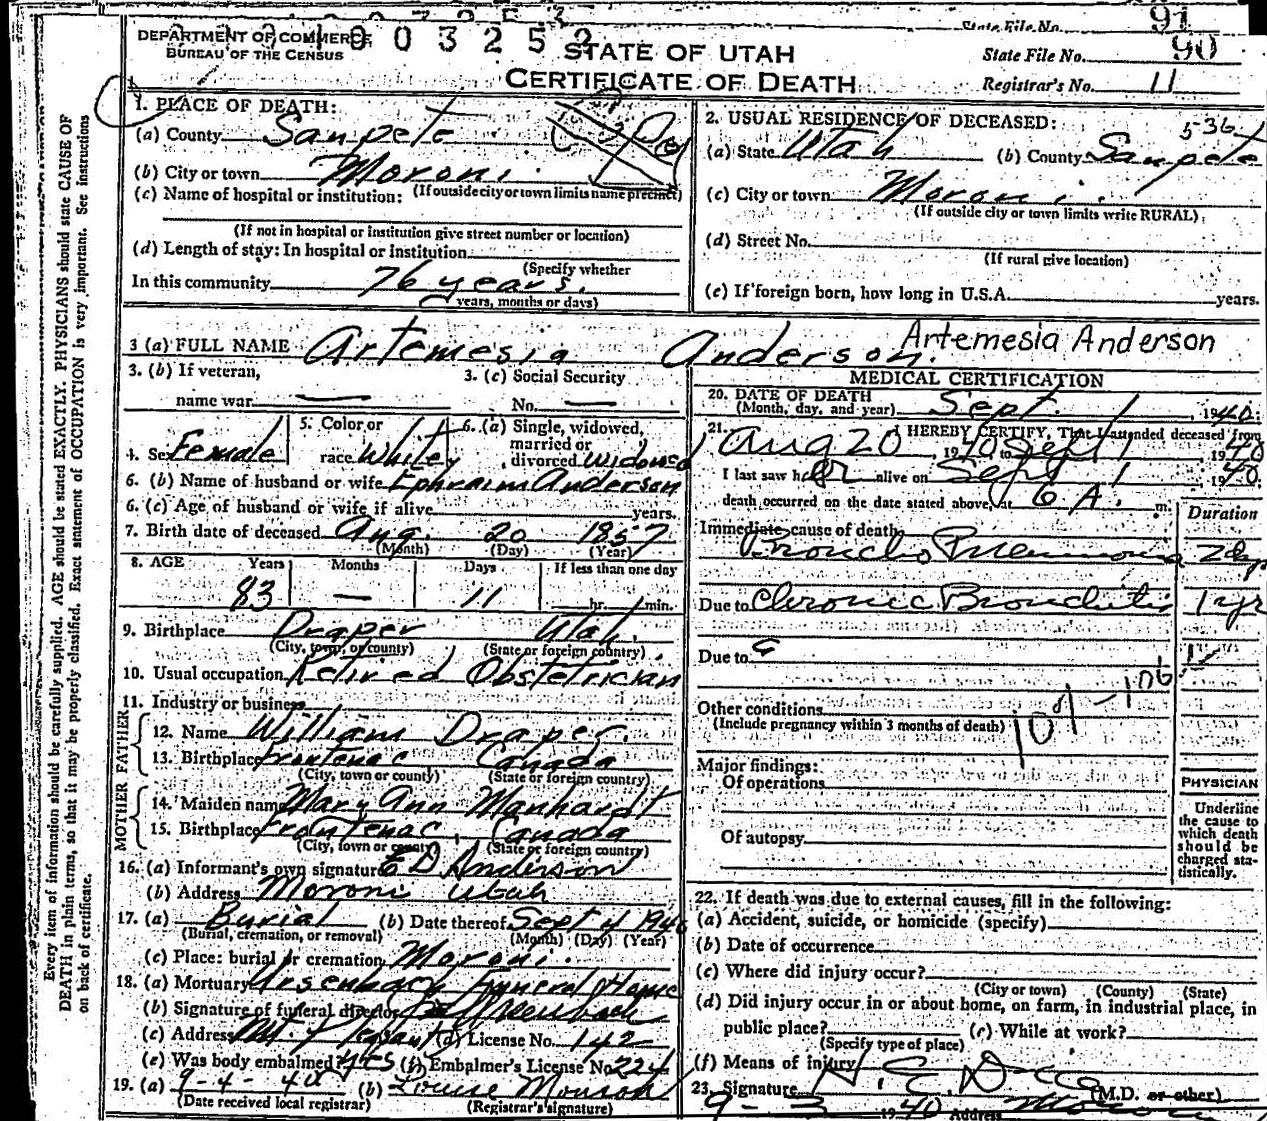 State File No. 91
1003252
DEPARTMENT OF COMMERCE
BUREAU OF THE CENSUS
STATE OF UTAH
CERTIFICATE OF DEATH
State File No. 90
Registrar's No. 11
1. PLACE OF DEATH:
(a) County Sanpete
(b) City or town Moroni.
(If outside city or town limits name precinct)
(c) Name of hospital or institution:
(If not in hospital or institution give street number or location)
(d) Length of stay: In hospital or institution
(Specify whether
In this community 76 years.
years, months or days)
2. USUAL RESIDENCE OF DECEASED: 5-36
(a) State Utah (b) County Sanpete
(c) City or town Moroni.
(If outside city or town limits write RURAL)
(d) Street No.
(If rural give location)
(e) If foreign born, how long in U.S.A. years.
3 (a) FULL NAME Artemesia Anderson. Artemesia Anderson
3. (b) If veteran, name war —
3. (c) Social Security No. —
4. Sex Female
5. Color or race White
6. (a) Single, widowed, married or divorced Widowed
6. (b) Name of husband or wife Ephraim Anderson
6. (c) Age of husband or wife if alive years.
7. Birth date of deceased Aug. 20 1857
(Month) (Day) (Year)
8. AGE Years Months Days If less than one day
83 — 11 hr. min.
9. Birthplace Draper Utah.
(City, town, or county) (State or foreign country)
10. Usual occupation Retired Obstetrician
11. Industry or business
FATHER
12. Name William Draper.
13. Birthplace Frontenac Canada
(City, town or county) (State or foreign country)
MOTHER
14. Maiden name Mary Ann Manhardt
15. Birthplace Frontenac, Canada
(City, town or county) (State or foreign country)
16. (a) Informant's own signature E D Anderson
(b) Address Moroni Utah
17. (a) Burial (b) Date thereof Sept 4 1940
(Burial, cremation, or removal) (Month) (Day) (Year)
(c) Place: burial or cremation Moroni.
18. (a) Mortuary Ursenbach Funeral Home
(b) Signature of funeral director
(c) Address Mt. Pleasant (d) License No. 142
(e) Was body embalmed yes (f) Embalmer's License No. 224
19. (a) 9-4-40 (b) Louise Monson
(Date received local registrar) (Registrar's signature)
MEDICAL CERTIFICATION
20. DATE OF DEATH
(Month, day, and year) Sept. 1, 1940.
21. I HEREBY CERTIFY, That I attended deceased from
Aug 20, 1940 to Sept 1 1940
I last saw her alive on Sept 1 1940.
death occurred on the date stated above, at 6 A. m.
Duration
Immediate cause of death
Broncho Pneumonia 2 dys
Due to Chronic Bronchitis 1 yr
Due to
Other conditions
(Include pregnancy within 3 months of death)
Major findings:
Of operations
Of autopsy
PHYSICIAN
Underline
the cause to
which death
should be
charged sta-
tistically.
22. If death was due to external causes, fill in the following:
(a) Accident, suicide, or homicide (specify)
(b) Date of occurrence
(c) Where did injury occur?
(City or town) (County) (State)
(d) Did injury occur in or about home, on farm, in industrial place, in
public place? (e) While at work?
(Specify type of place)
(f) Means of injury
23. Signature (M.D. or other)
9-3 1940 Address Moroni
Every item of information should be carefully supplied. AGE should be stated EXACTLY. PHYSICIANS should state CAUSE OF
DEATH in plain terms, so that it may be properly classified. Exact statement of OCCUPATION is very important. See instructions
on back of certificate.